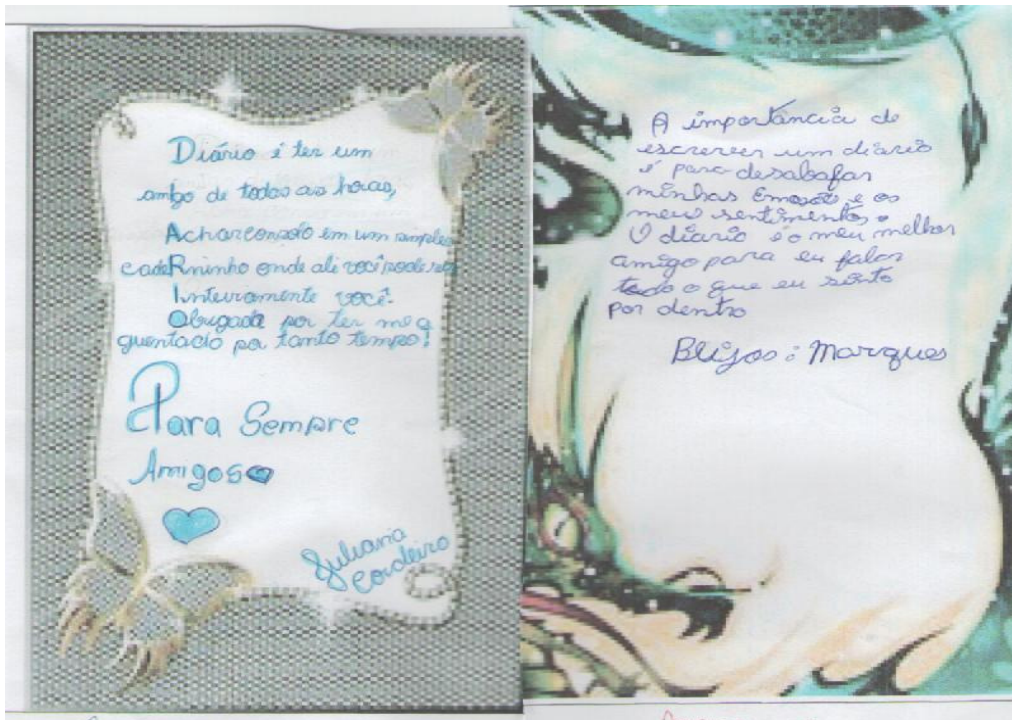 Diário é ter um
amigo de todas as horas,
Achar consolo em um simples
cadeRninho onde ali você pode ser
Inteiramente você.
Obrigada por ter me a
guentado por tanto tempo!
Para Sempre
Amigos
Juliana
Cordeiro
A importância de
escrever um diario
é para desabafar
minhas Emosoẽs e os
meu sentimento.
O diario é o meu melhor
amigo para eu falar
tudo o que eu sinto
por dentro
Marques